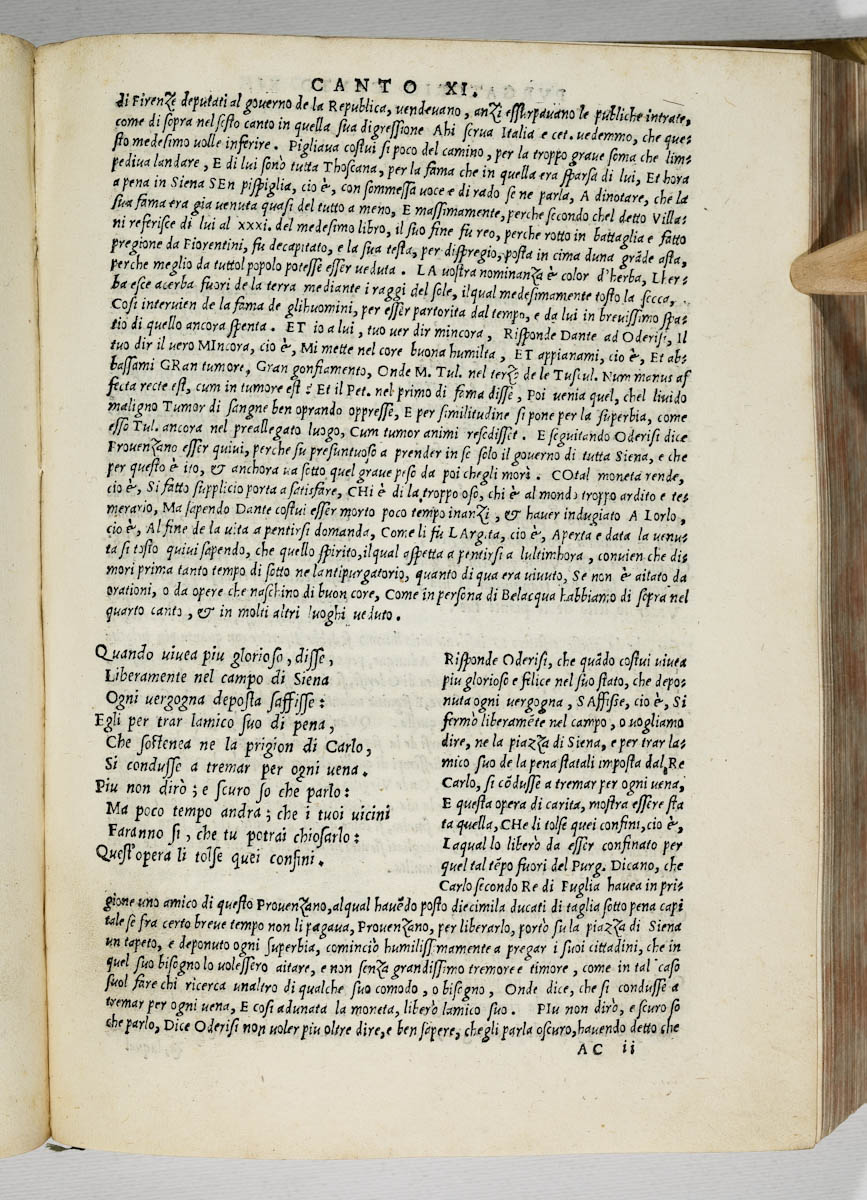 CANTO XI.
di Firenze deputati al governo de la Republica, vendevano, anzi essurpavano le publiche intrate,
come di sopra nel sesto canto in quella sua digressione Ahi serua Italia e cet. vedemmo, che que-
sto medesimo volle inferire. Pigliava costui si poco del camino, per la troppo grave soma che lim-
pediva landare, E di lui sonò tutta Thoscana, per la fama che in quella era sparsa di lui, Et hora
a pena in Siena SEn pispiglia, cio è, con sommessa voce e di rado se ne parla, A dinotare, che la
sua fama era gia venuta quasi del tutto a meno, E massimamente, perche secondo chel detto Villa-
ni referisce di lui al xxxi. del medesimo libro, il suo fine fu reo, perche rotto in battaglia e fatto
pregione da Fiorentini, fu decapitato, e la sua testa, per dispregio, posta in cima duna grãde asta,
perche meglio da tuttol popolo potesse esser veduta. LA vostra nominanza è color d'herba, Lher-
ba esce acerba fuori de la terra mediante i raggi del sole, ilqual medesimamente tosto la secca,
Cosi intervien de la fama de glihuomini, per esser partorita dal tempo, e da lui in brevissimo spa-
tio di quello ancora spenta. ET io a lui, tuo ver dir mincora, Risponde Dante ad Oderisi, Il
tuo dir il vero MIncora, cio è, Mi mette nel core buona humilta, ET appianami, cio è, Et ab-
bassami GRan tumore, Gran gonfiamento, Onde M. Tul. nel terzo de le Tuscul. Num manus af
fecta recte est, cum in tumore est? Et il Pet. nel primo di fama disse, Poi venia quel, chel livido
maligno Tumor di sangue ben oprando oppresse, E per similitudine si pone per la superbia, come
esso Tul. ancora nel preallegato luogo, Cum tumor animi resedisset. E seguitando Oderisi dice
Provenzano esser quivi, perche fu presuntuoso a prender in se solo il governo di tutta Siena, e che
per questo è ito, & anchora va sotto quel grave peso da poi chegli morì. COtal moneta rende,
cio è, Si fatto supplicio porta a satisfare, CHi è di la troppo oso, chi è al mondo troppo ardito e te-
merario, Ma sapendo Dante costui esser morto poco tempo inanzi, & haver indugiato A lorlo,
cio è, Al fine de la vita a pentirsi domanda, Come li fu LArgita, cio è, Aperta e data la venu-
ta si tosto quivi sapendo, che quello spirito, ilqual aspetta a pentirsi a lultimhora, convien che di-
mori prima tanto tempo di sotto ne lantipurgatorio, quanto di qua era vivuto, Se non è aitato da
orationi, o da opere che naschino di buon core, Come in persona di Belacqua habbiamo di sopra nel
quarto canto, & in molti altri luoghi veduto.
Quando vivea piu glorioso, disse,
Liberamente nel campo di Siena
Ogni vergogna deposta saffisse:
Egli per trar lamico suo di pena,
Che sostenea ne la prigion di Carlo,
Si condusse a tremar per ogni vena.
Piu non dirò; e scuro so che parlo:
Ma poco tempo andra; che i tuoi vicini
Faranno si, che tu potrai chiosarlo:
Quest'opera li tolse quei confini.
Risponde Oderisi, che quãdo costui vivea
piu glorioso e felice nel suo stato, che depo-
nuta ogni vergogna, SAffisse, cio è, Si
fermò liberamẽte nel campo, o vogliamo
dire, ne la piazza di Siena, e per trar la-
mico suo de la pena statali imposta dal Re
Carlo, si cõdusse a tremar per ogni vena,
E questa opera di carita, mostra essere sta
ta quella, CHe li tolse quei confini, cio è,
Laqual lo liberò da esser confinato per
quel tal tẽpo fuori del Purg. Dicano, che
Carlo secondo Re di Puglia havea in pri-
gione uno amico di questo Provenzano, alqual havẽdo posto diecimila ducati di taglia sotto pena capi
tale se fra certo breve tempo non li pagava, Provenzano, per liberarlo, portò su la piazza di Siena
un tapeto, e deponuto ogni superbia, cominciò humilissimamente a pregar i suoi cittadini, che in
quel suo bisogno lo volessero aitare, e non senza grandissimo tremore e timore, come in tal caso
suol fare chi ricerca unaltro di qualche suo comodo, o bisogno, Onde dice, che si condusse a
tremar per ogni vena, E cosi adunata la moneta, liberò lamico suo. PIu non dirò, e scuro so
che parlo, Dice Oderisi non voler piu oltre dire, e ben sapere, chegli parla oscuro, havendo detto che
AC ii